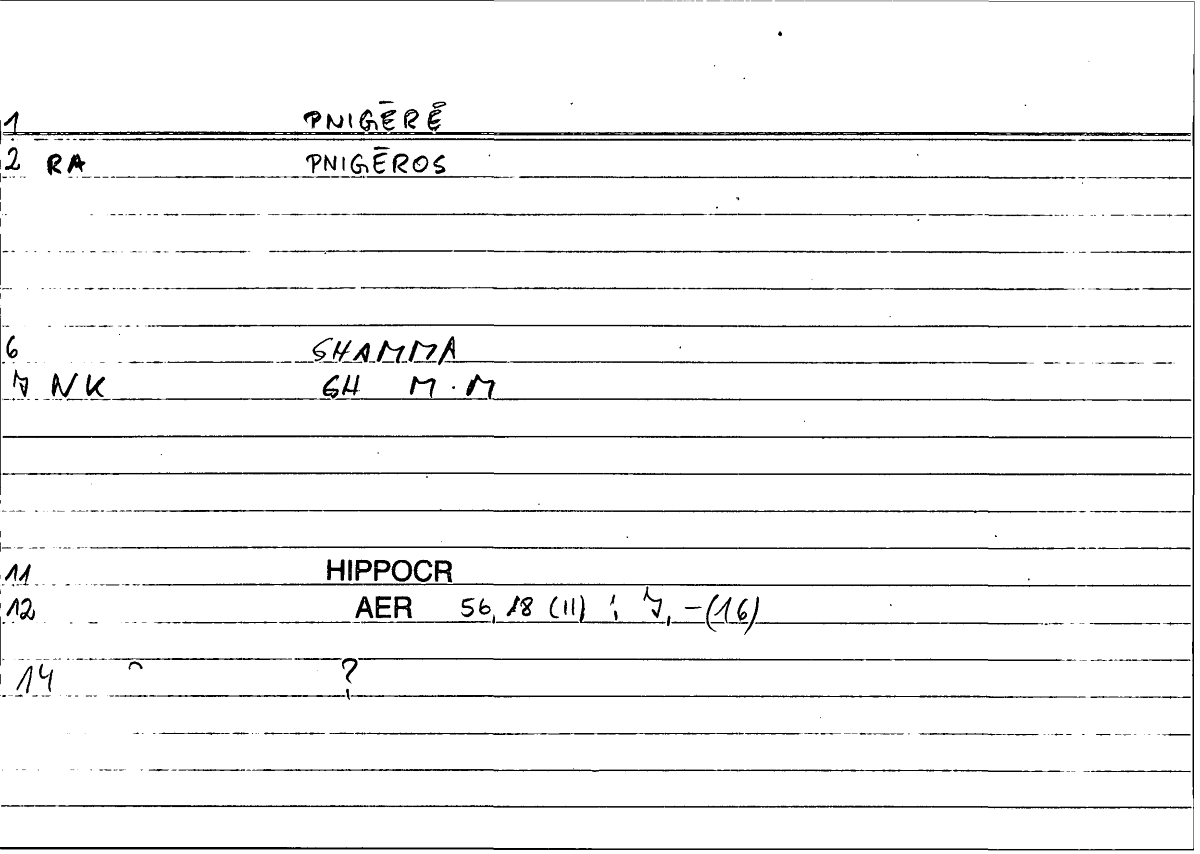 1 PNIGĒRĒ
2 RA PNIGĒROS
6 SHAMMA
7 NK SH M.M
11 HIPPOCR
12 AER 56,18 (11) ; 7, -(16)
14 ?